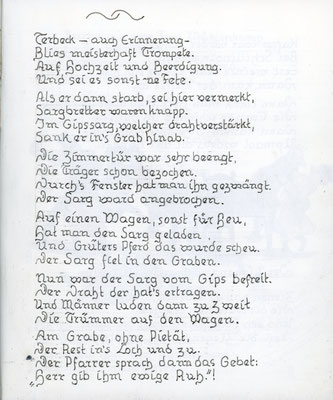 Terbeck – auch Erinnerung –
Blies meisterhaft Trompete.
Auf Hochzeit und Beerdigung.
Und sei es sonst 'ne Fete.
Als er dann starb, sei hier vermerkt,
Sargbretter waren knapp.
Im Gipssarg, welcher drahtverstärkt,
Sank er in's Grab hinab.
Die Zimmertür war sehr beengt,
Die Träger schon bezochen.
Durch's Fenster hat man ihn gezwängt.
Der Sarg ward angebrochen.
Auf einen Wagen, sonst für Heu,
Hat man den Sarg geladen
Und Grüters Pferd das wurde scheu.
Der Sarg fiel in den Graben.
Nun war der Sarg vom Gips befreit.
Der Draht der hat's ertragen.
Und Männer luden dann zu zweit
Die Trümmer auf den Wagen.
Am Grabe, ohne Pietät,
Der Rest in's Loch und zu.
Der Pfarrer sprach dann das Gebet:
"Herr gib ihm ewige Ruh."!